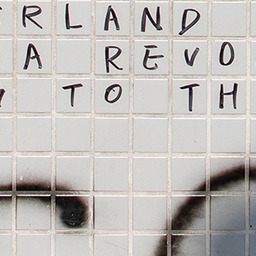 RLAND
A REVO
TO TH